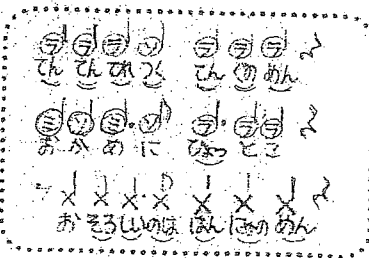 ララララソ ラララ
てんてんてれつく てんぐのめん
ミソミソ ラララ
おかめに ひょっとこ
おそろしいのは はんにゃのめん